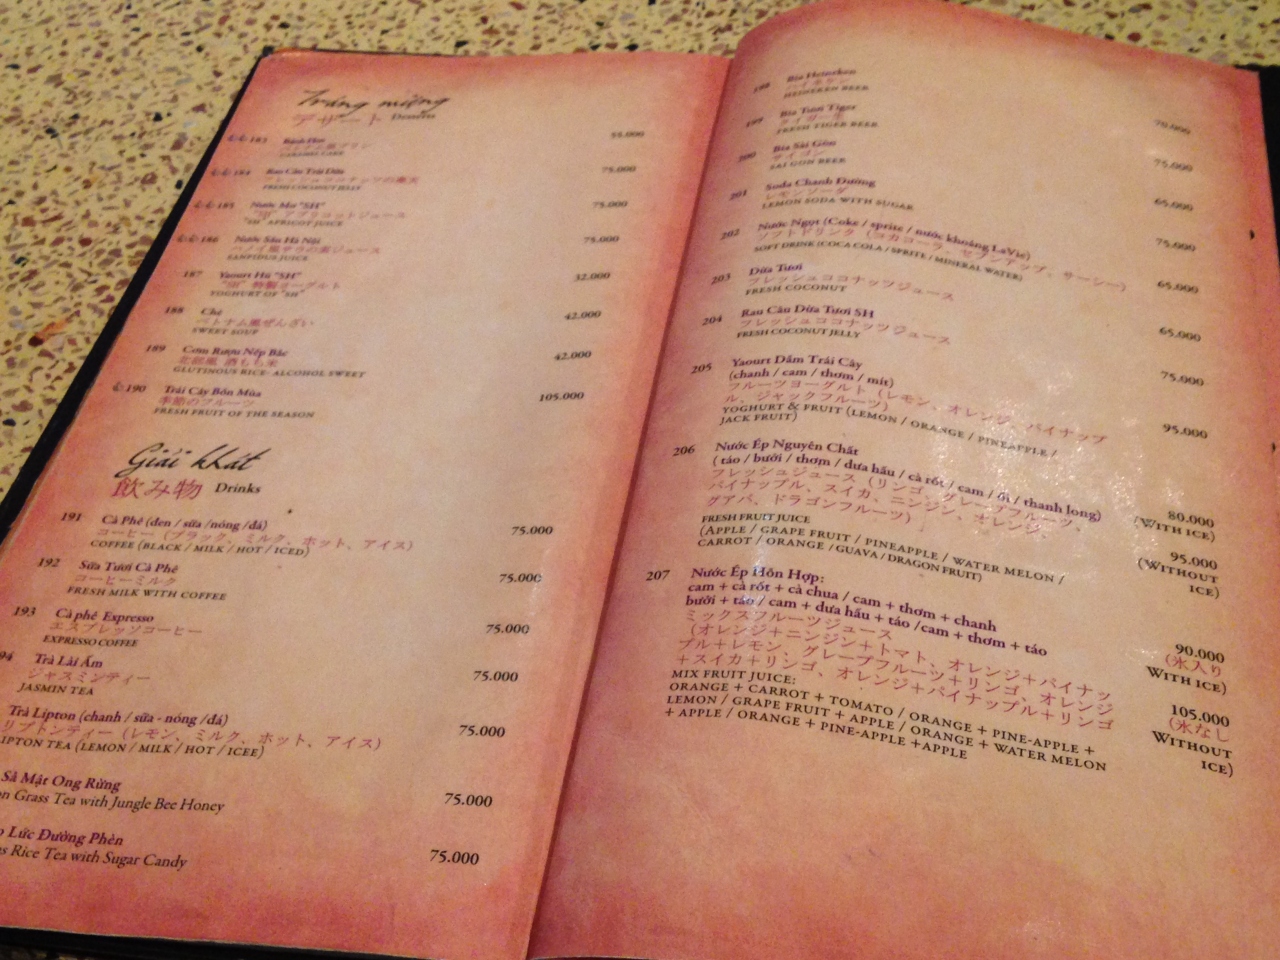 Tráng miệng
デザート Desserts
183 Bánh Flan
ベトナム風プリン
CARAMEL CAKE
55.000
184 Rau Câu Trái Dừa
フレッシュココナッツの寒天
FRESH COCONUT JELLY
75.000
185 Nước Mơ "SH"
"SH" アプリコットジュース
"SH" APRICOT JUICE
75.000
186 Nước Sấu Hà Nội
ハノイ風サウの実ジュース
75.000
187 Yaourt Hũ "SH"
"SH" 特製ヨーグルト
YOGHURT OF "SH"
32.000
188 Chè
ベトナム風ぜんざい
SWEET SOUP
42.000
189 Cơm Rượu Nếp Bắc
北部風 酒もち米
GLUTINOUS RICE- ALCOHOL SWEET
42.000
190 Trái Cây Bốn Mùa
季節のフルーツ
FRESH FRUIT OF THE SEASON
105.000
Giải khát
飲み物 Drinks
191 Cà Phê (đen / sữa /nóng /đá)
コーヒー (ブラック、ミルク、ホット、アイス)
COFFEE (BLACK / MILK / HOT / ICED)
75.000
192 Sữa Tươi Cà Phê
コーヒーミルク
FRESH MILK WITH COFFEE
75.000
193 Cà phê Espresso
エスプレッソコーヒー
EXPRESSO COFFEE
75.000
94 Trà Lài Ấm
ジャスミンティー
JASMIN TEA
75.000
Trà Lipton (chanh / sữa - nóng /đá)
リプトンティー (レモン、ミルク、ホット、アイス)
IPTON TEA (LEMON / MILK / HOT / ICEE)
75.000
Sả Mật Ong Rừng
on Grass Tea with Jungle Bee Honey
75.000
Lức Đường Phèn
s Rice Tea with Sugar Candy
75.000
198 Bia Heineken
ハイネケン
HEINEKEN BEER
70.000
199 Bia Tươi Tiger
タイガー生
FRESH TIGER BEER
75.000
200 Bia Sài Gòn
サイゴン
SAI GON BEER
65.000
201 Soda Chanh Đường
レモンソーダ
LEMON SODA WITH SUGAR
75.000
202 Nước Ngọt (Coke / sprite / nước khoáng LaVie)
ソフトドリンク (コカコーラ、セブンアップ、サーシー)
SOFT DRINK (COCA COLA / SPRITE / MINERAL WATER)
65.000
203 Dừa Tươi
フレッシュココナッツジュース
FRESH COCONUT
65.000
204 Rau Câu Dừa Tươi SH
フレッシュココナッツジュース
FRESH COCONUT JELLY
75.000
205 Yaourt Dầm Trái Cây
(chanh / cam / thơm / mít)
フルーツヨーグルト (レモン、オレンジ、パイナップ
ル、ジャックフルーツ)
YOGHURT & FRUIT (LEMON / ORANGE / PINEAPPLE /
JACK FRUIT)
95.000
206 Nước Ép Nguyên Chất
( táo / bưởi / thơm / dưa hấu / cà rốt / cam / ổi / thanh long)
フレッシュジュース (リンゴ、グレープフルーツ、
パイナップル、スイカ、ニンジン、オレンジ、
グアバ、ドラゴンフルーツ)
FRESH FRUIT JUICE
(APPLE / GRAPE FRUIT / PINEAPPLE / WATER MELON /
CARROT / ORANGE / GUAVA / DRAGON FRUIT)
80.000
(WITH ICE)
95.000
(WITHOUT
ICE)
207 Nước Ép Hỗn Hợp:
cam + cà rốt + cà chua / cam + thơm + chanh
bưởi + táo / cam + dưa hấu + táo /cam + thơm + táo
ミックスフルーツジュース
(オレンジ＋ニンジン＋トマト、オレンジ＋パイナッ
プル＋レモン、グレープフルーツ＋リンゴ、オレンジ
＋スイカ＋リンゴ、オレンジ＋パイナップル＋リンゴ
MIX FRUIT JUICE:
ORANGE + CARROT + TOMATO / ORANGE + PINE-APPLE +
LEMON / GRAPE FRUIT + APPLE / ORANGE + WATER MELON
+ APPLE / ORANGE + PINE-APPLE +APPLE
90.000
(氷入り
WITH ICE)
105.000
(氷なし
WITHOUT
ICE)